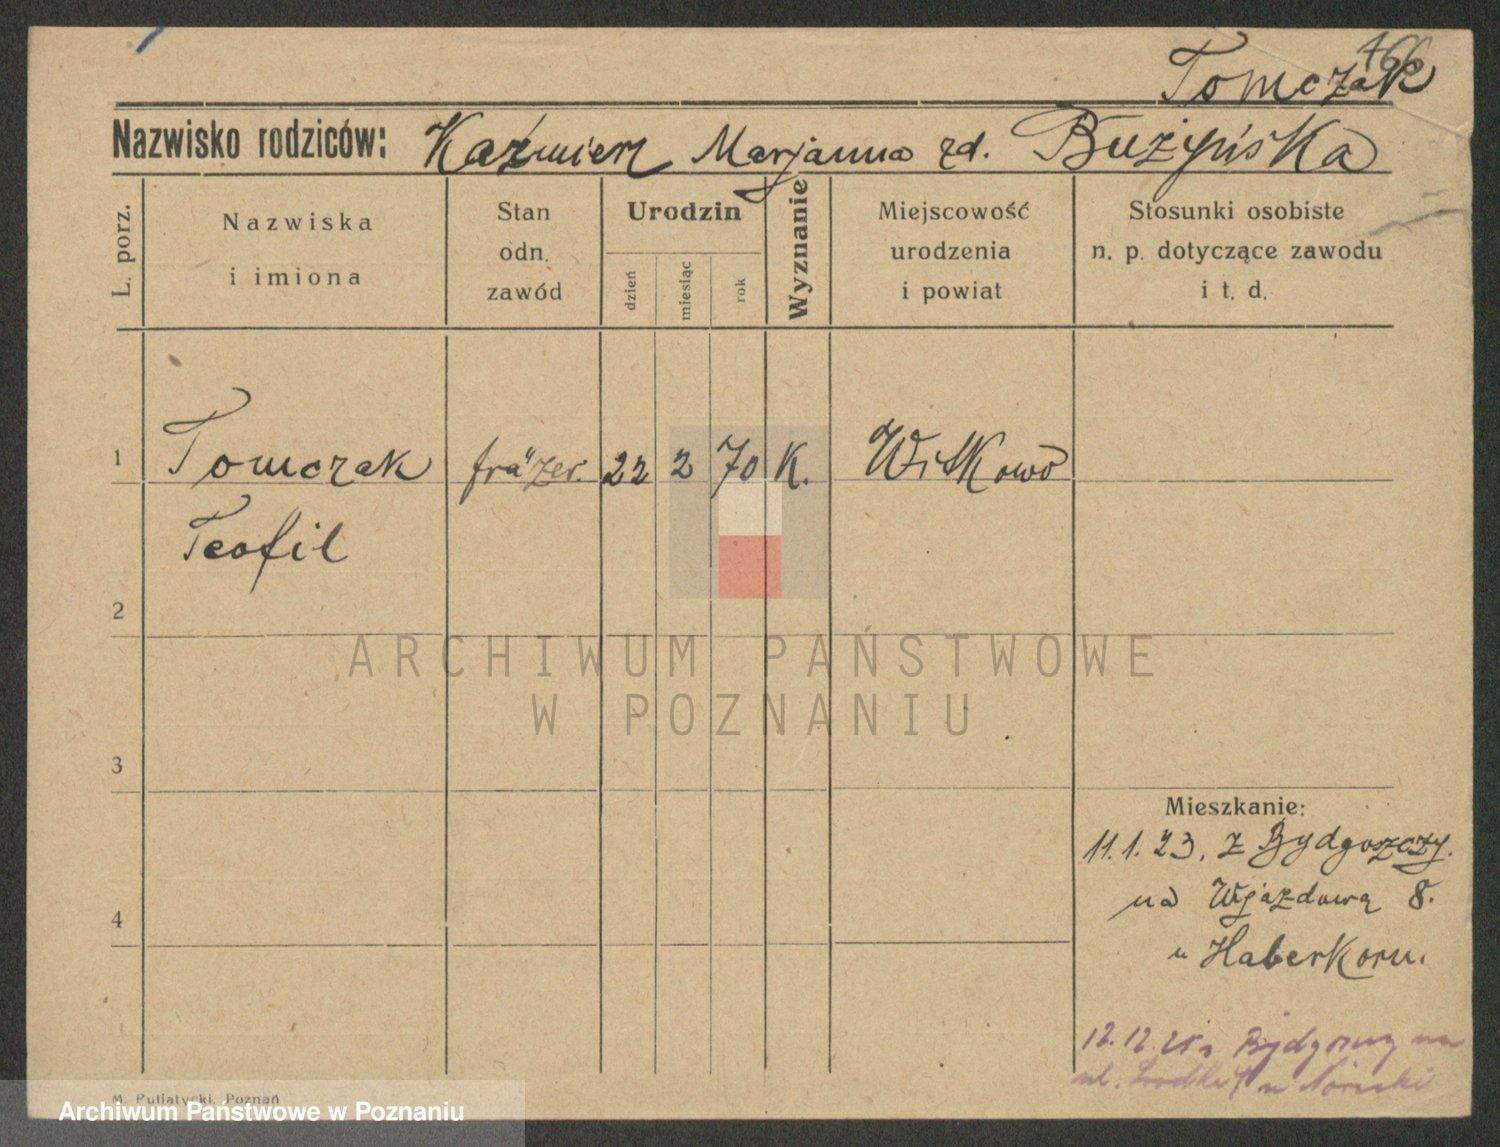 466
Tomczak
Nazwisko rodziców: Kaźmierz Marjanna zd. Bużyńska
L. porz.
Nazwiska
i imiona
Stan
odn.
zawód
Urodzin
dzień
miesiąc
rok
Wyznanie
Miejscowość
urodzenia
i powiat
Stosunki osobiste
n. p. dotyczące zawodu
i t. d.
1 Tomczak fräzer. 22 2 70 K. Witkowo
Teofil
2
ARCHIWUM PAŃSTWOWE
W POZNANIU
3
Mieszkanie:
11.1.23. z Bydgoszczy.
na Wjazdową 8.
u Haberkorn.
4
12.12. Bydgoszcz na
ul. u
M. Putiatycki, Poznań
Archiwum Państwowe w Poznaniu